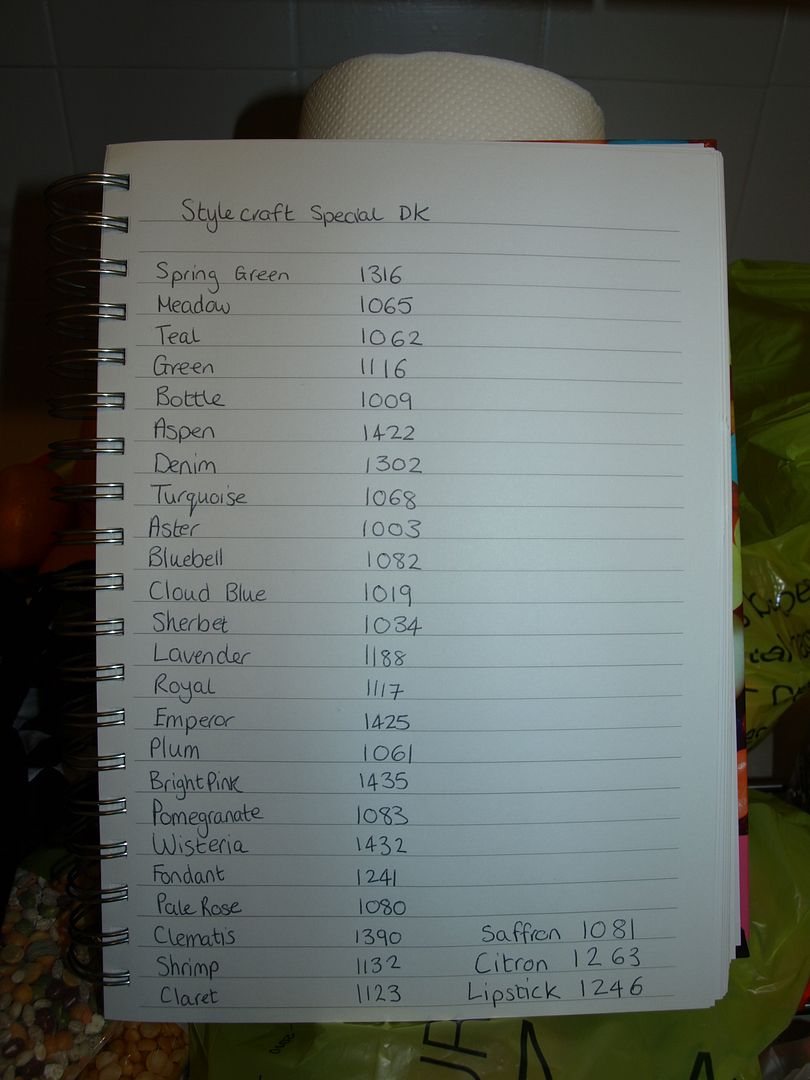 Stylecraft Special DK
Spring Green 1316
Meadow 1065
Teal 1062
Green 1116
Bottle 1009
Aspen 1422
Denim 1302
Turquoise 1068
Aster 1003
Bluebell 1082
Cloud Blue 1019
Sherbet 1034
Lavender 1188
Royal 1117
Emperor 1425
Plum 1061
Bright Pink 1435
Pomegranate 1083
Wisteria 1432
Fondant 1241
Pale Rose 1080
Clematis 1390 Saffron 1081
Shrimp 1132 Citron 1263
Claret 1123 Lipstick 1246